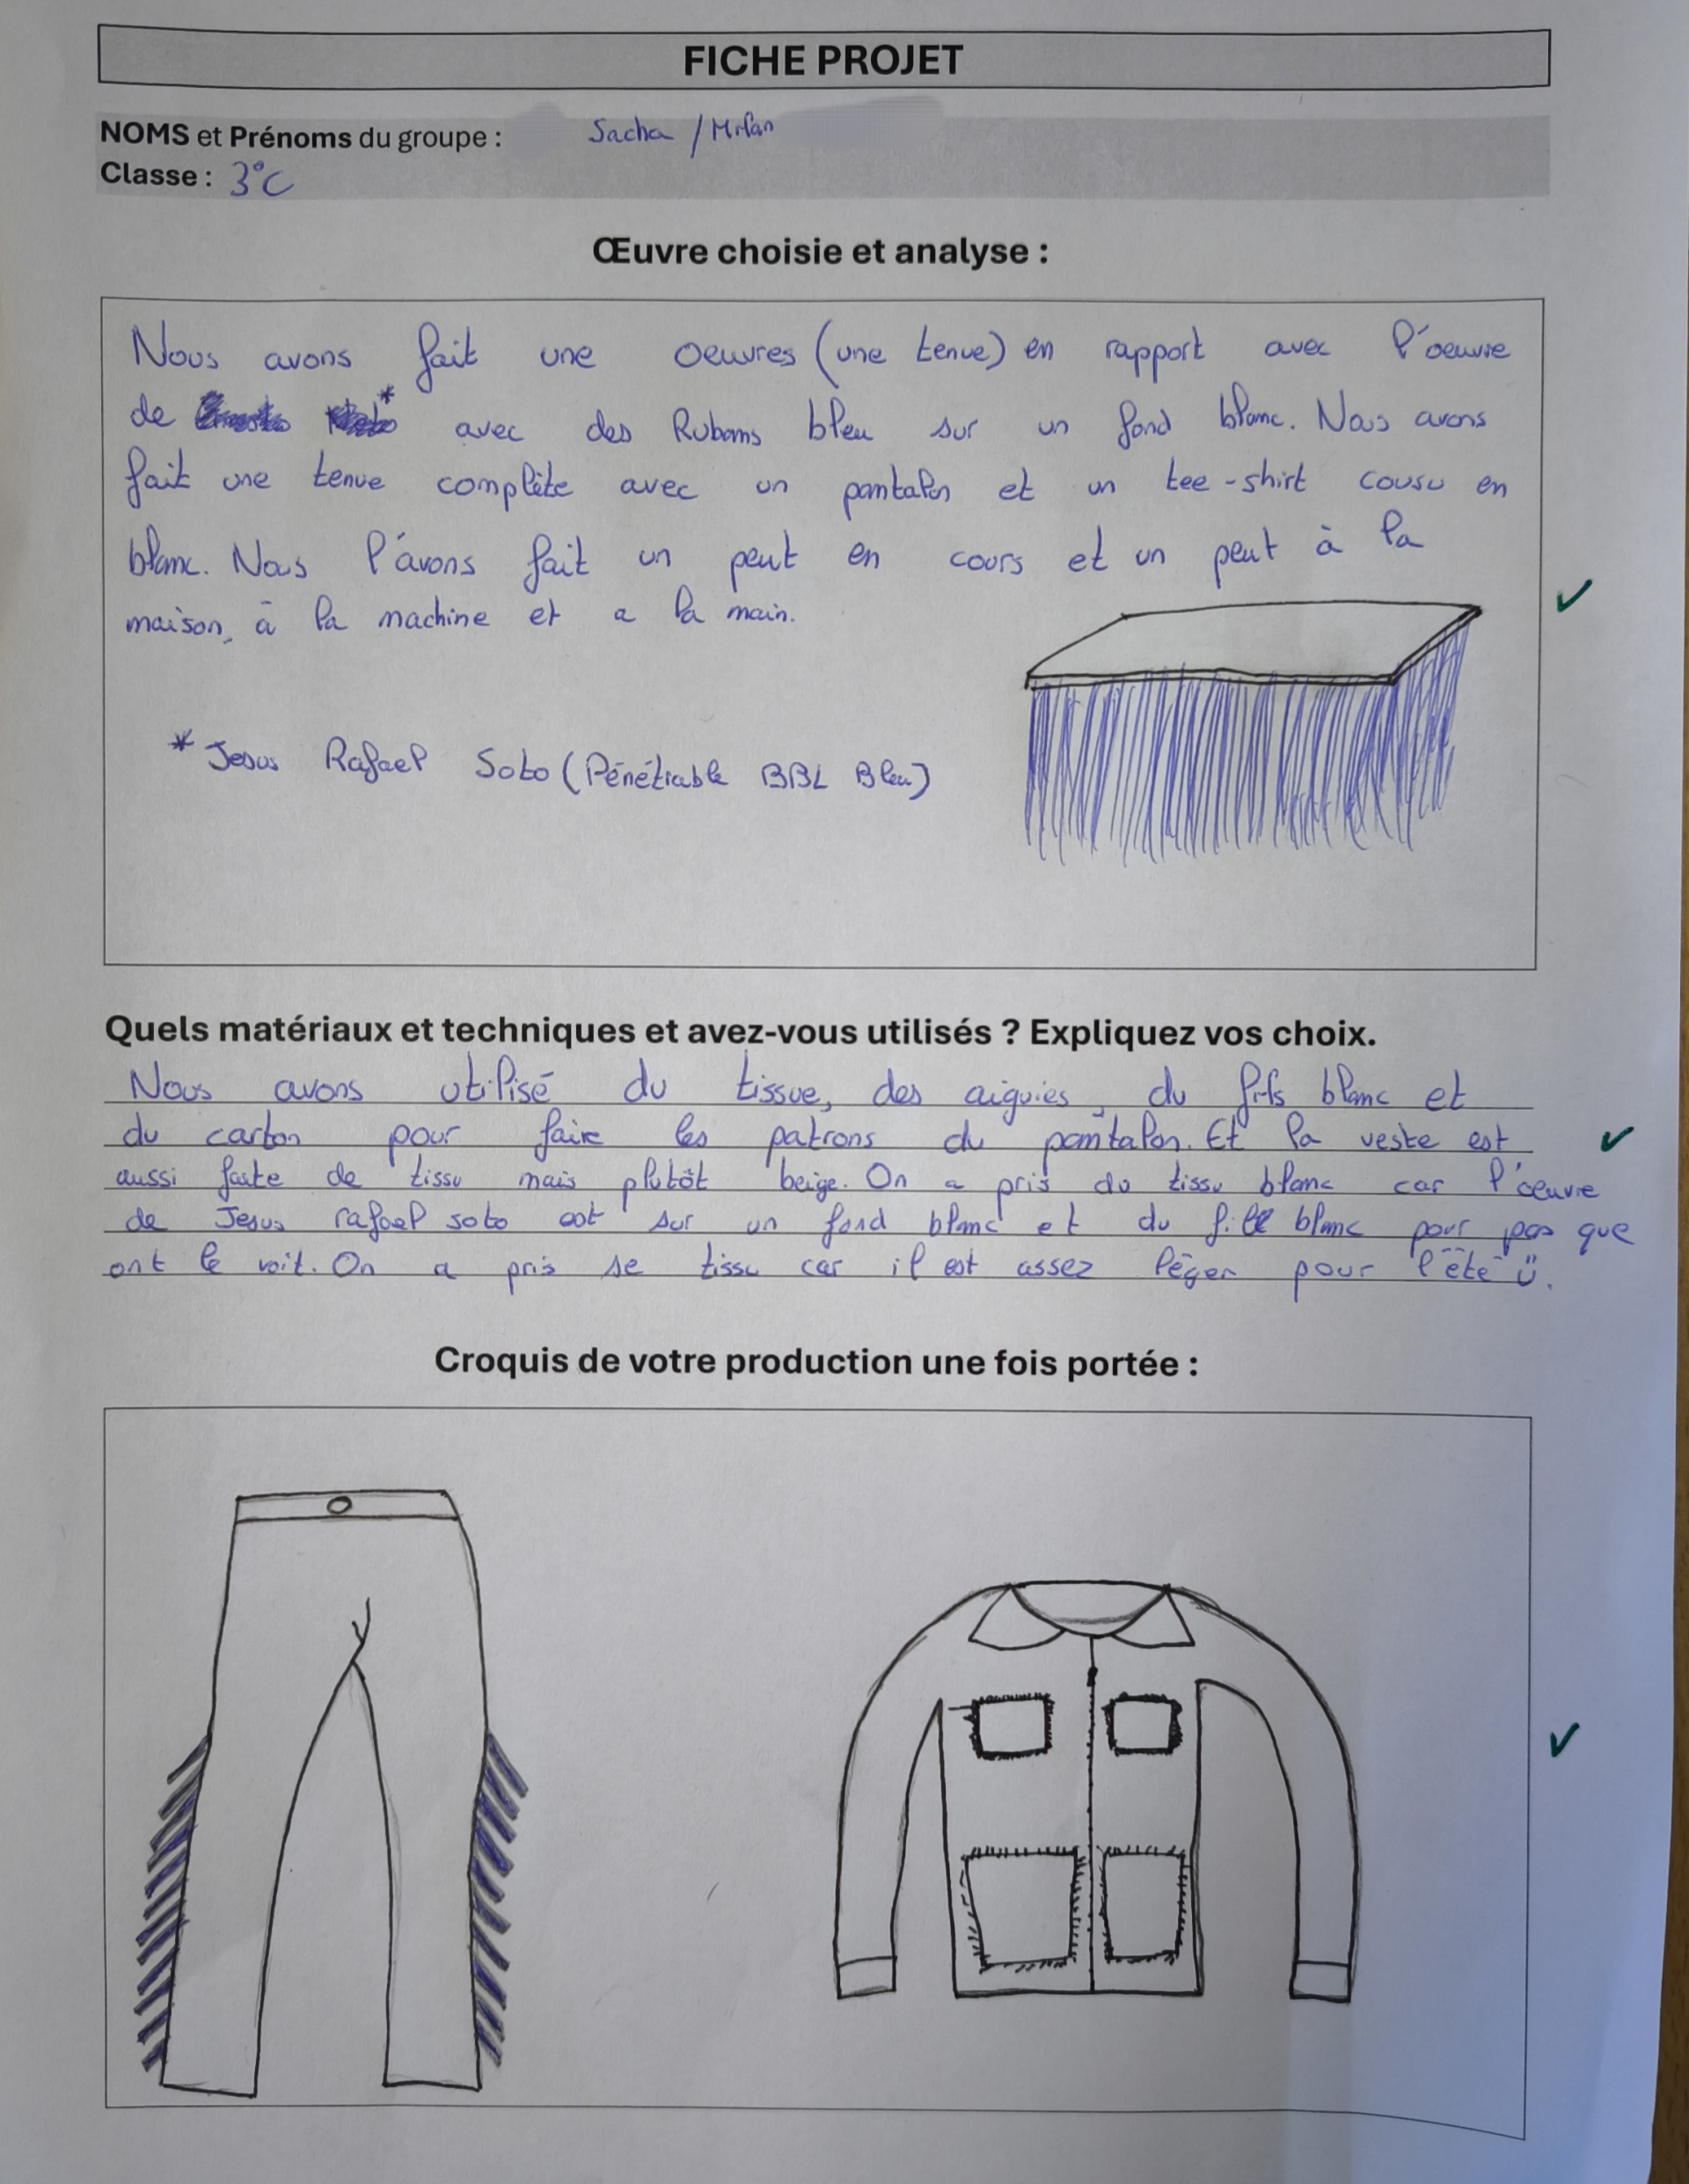 FICHE PROJET
NOMS et Prénoms du groupe : Sacha / Milan
Classe : 3°C
Œuvre choisie et analyse :
Nous avons fait une oeuvres (une tenue) en rapport avec l'oeuvre
de * avec des Rubans bleu sur un fond blanc. Nous avons
fait une tenue complète avec un pantalon et un tee-shirt cousu en
blanc. Nous l'avons fait un peut en cours et un peut à la
maison, à la machine et a la main.
* Jesus Rafael Soto (Pénétrable BBL Bleu)
Quels matériaux et techniques et avez-vous utilisés ? Expliquez vos choix.
Nous avons utilisé du tissue, des aiguies, du fils blanc et
du carton pour faire les patrons du pantalon. Et la veste est
aussi faite de tissu mais plutôt beige. On a pris du tissu blanc car l'oeuvre
de Jesus rafael soto est sur un fond blanc et du fil blanc pour pas que
ont le voit. On a pris se tissu car il est assez léger pour l'été ü.
Croquis de votre production une fois portée :